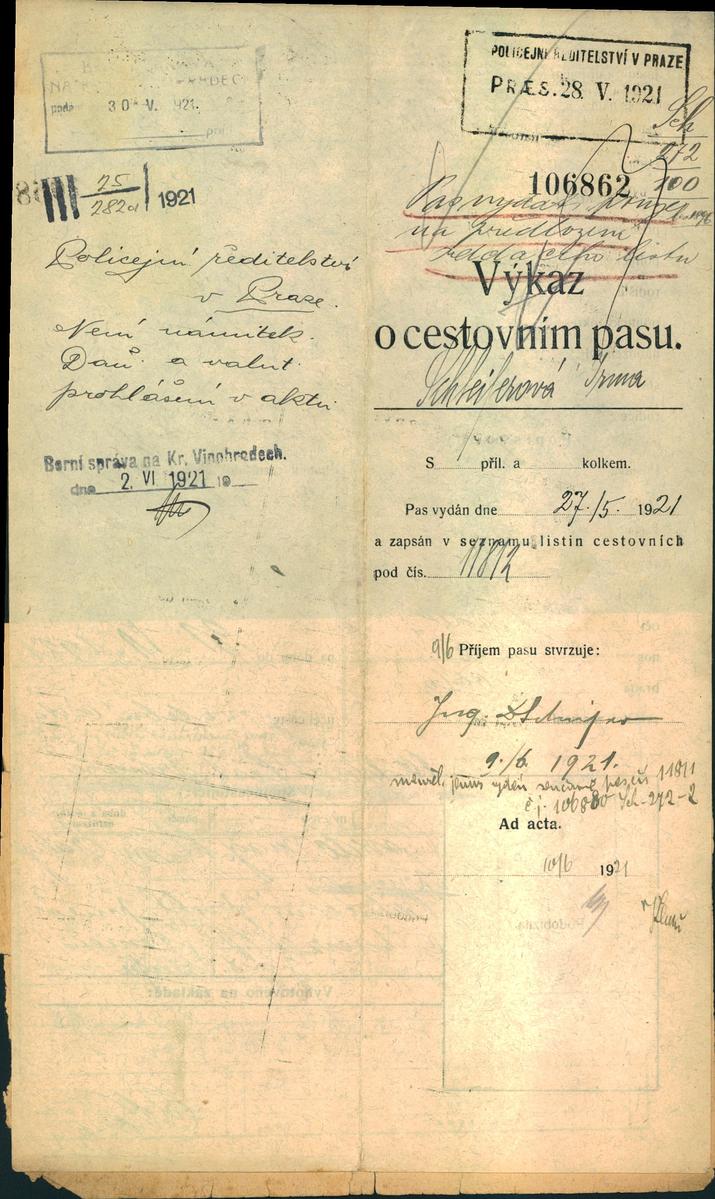 podá
30 V. 1921.
III 25/282a 1921
Policejní ředitelství
v Praze.
Není námitek.
Daň. a valut.
prohlášení v aktu
Berní správa na Kr. Vinohradech.
dne 2. VI 1921 19
POLICEJNÍ ŘEDITELSTVÍ V PRAZE
PRÆS. 28. V. 1921
Sch
272
100
106862
Pas vydá
na předložení
listu
Výkaz
o cestovním pasu.
Irma
S příl. a kolkem.
Pas vydán dne 27./5. 1921
a zapsán v seznamu listin cestovních
pod čís. 11812
9/6 Příjem pasu stvrzuje:
Ing.
9./6. 1921.
11811
čj. 106860 Sch-272-2
Ad acta.
10/6 1921
Podobizna
Vyhotoveno na základě: